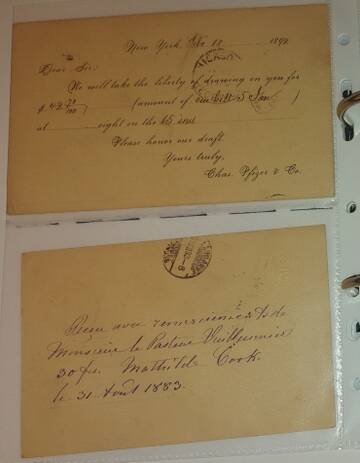 New York, 18 1892
Dear Sir:
We will take the liberty of drawing on you for
$ 42 (amount of our bill 5 Jan )
at sight on the 15 inst
Please honor our draft
Yours truly,
Chas. Pfizer & Co.
Recu avec remerciements de
Monsieur le Pasteur Vuilleumier
30 frs. Mathilde Cook.
le 31 Août 1883.